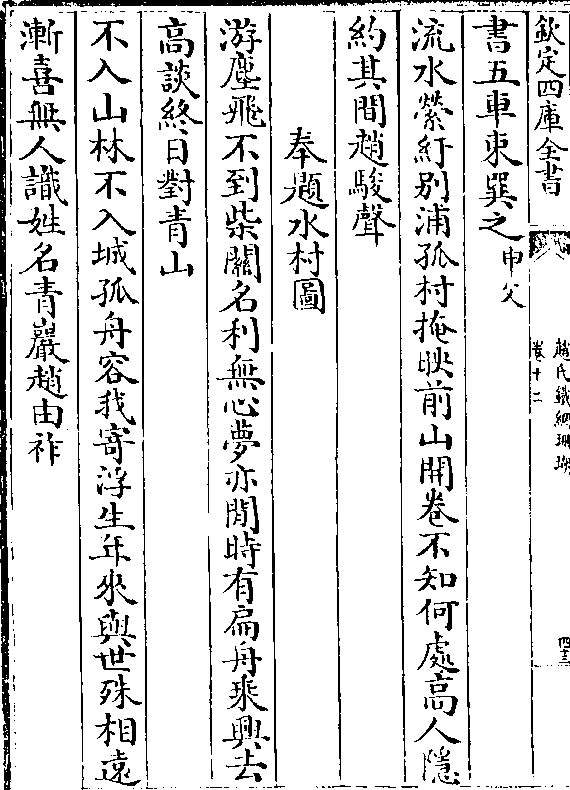 欽定四庫全書
趙氏鐵網珊瑚
卷十二
四十三
書五車東巽之申父
流水縈紆别浦孤村掩映前山開卷不知何處高人隱
約其間趙駿聲
奉題水村圖
游塵飛不到柴關名利無心夢亦閒時有扁舟乘興去
高談終日對青山
不入山林不入城孤舟容我寄浮生年來與世殊相遠
漸喜無人識姓名青巖趙由祚